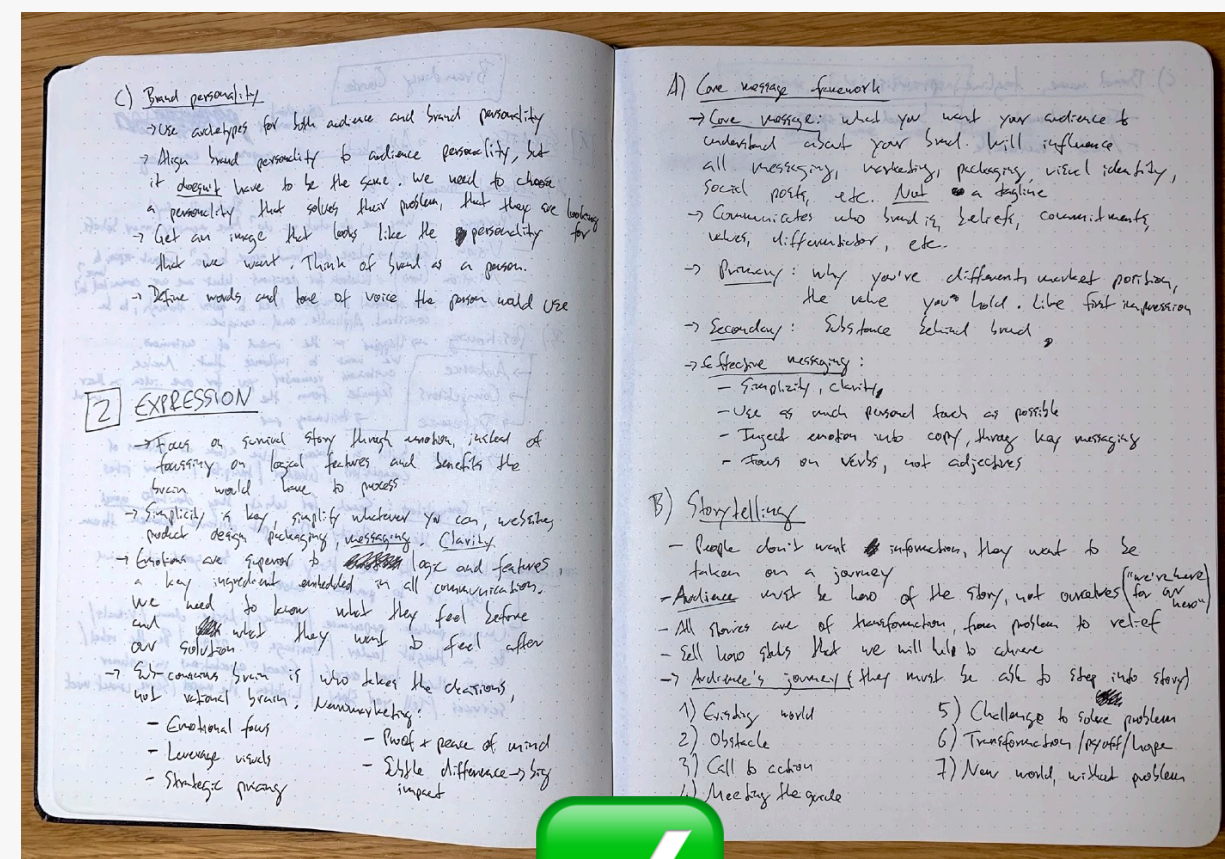 C) Brand personality
→ Use archetypes for both audience and brand personality
→ Align brand personality to audience personality, but
it doesn't have to be the same. We need to choose
a personality that solves their problem, that they are looking
for
→ Get an image that looks like the personality
that we want. Think of brand as a person.
→ Define words and tone of voice the person would use
2 EXPRESSION
→ Focus on survival story through emotion, instead of
focussing on logical features and benefits the
brain would have to process
→ Simplicity is key, simplify whatever you can, websites,
product design, packaging, messaging. Clarity
→ Emotions are superior to logic and features,
a key ingredient embedded in all communication.
We need to know what they feel before
and what they want to feel after
our solution
→ Sub-conscious brain is who takes the decisions,
not rational brain. Neuromarketing:
- Emotional focus
- Leverage visuals
- Strategic pricing
- Proof + peace of mind
- Subtle difference → big
impact
A) Core message framework
→ Core message: what you want your audience to
understand about your brand. Will influence
all messaging, marketing, packaging, visual identity,
social posts, etc. Not a tagline
→ Communicates who brand is, beliefs, commitments,
values, differentiator, etc.
→ Primary: why you're different, market position,
the value you hold. Like first impression
→ Secondary: Substance behind brand
→ Effective messaging:
- Simplicity, clarity
- Use as much personal touch as possible
- Inject emotion into copy, throug key messaging
- Focus on verbs, not adjectives
B) Storytelling
- People don't want information, they want to be
taken on a journey
- Audience must be hero of the story, not ourselves ("we're here
for our
hero")
- All stories are of transformation, from problem to relief
- Sell hero goals that we will help to achieve
→ Audience's journey (they must be able to step into story)
1) Existing world
2) Obstacle
3) Call to action
4) Meeting the guide
5) Challenge to solve problem
6) Transformation / payoff / hope
7) New world, without problem